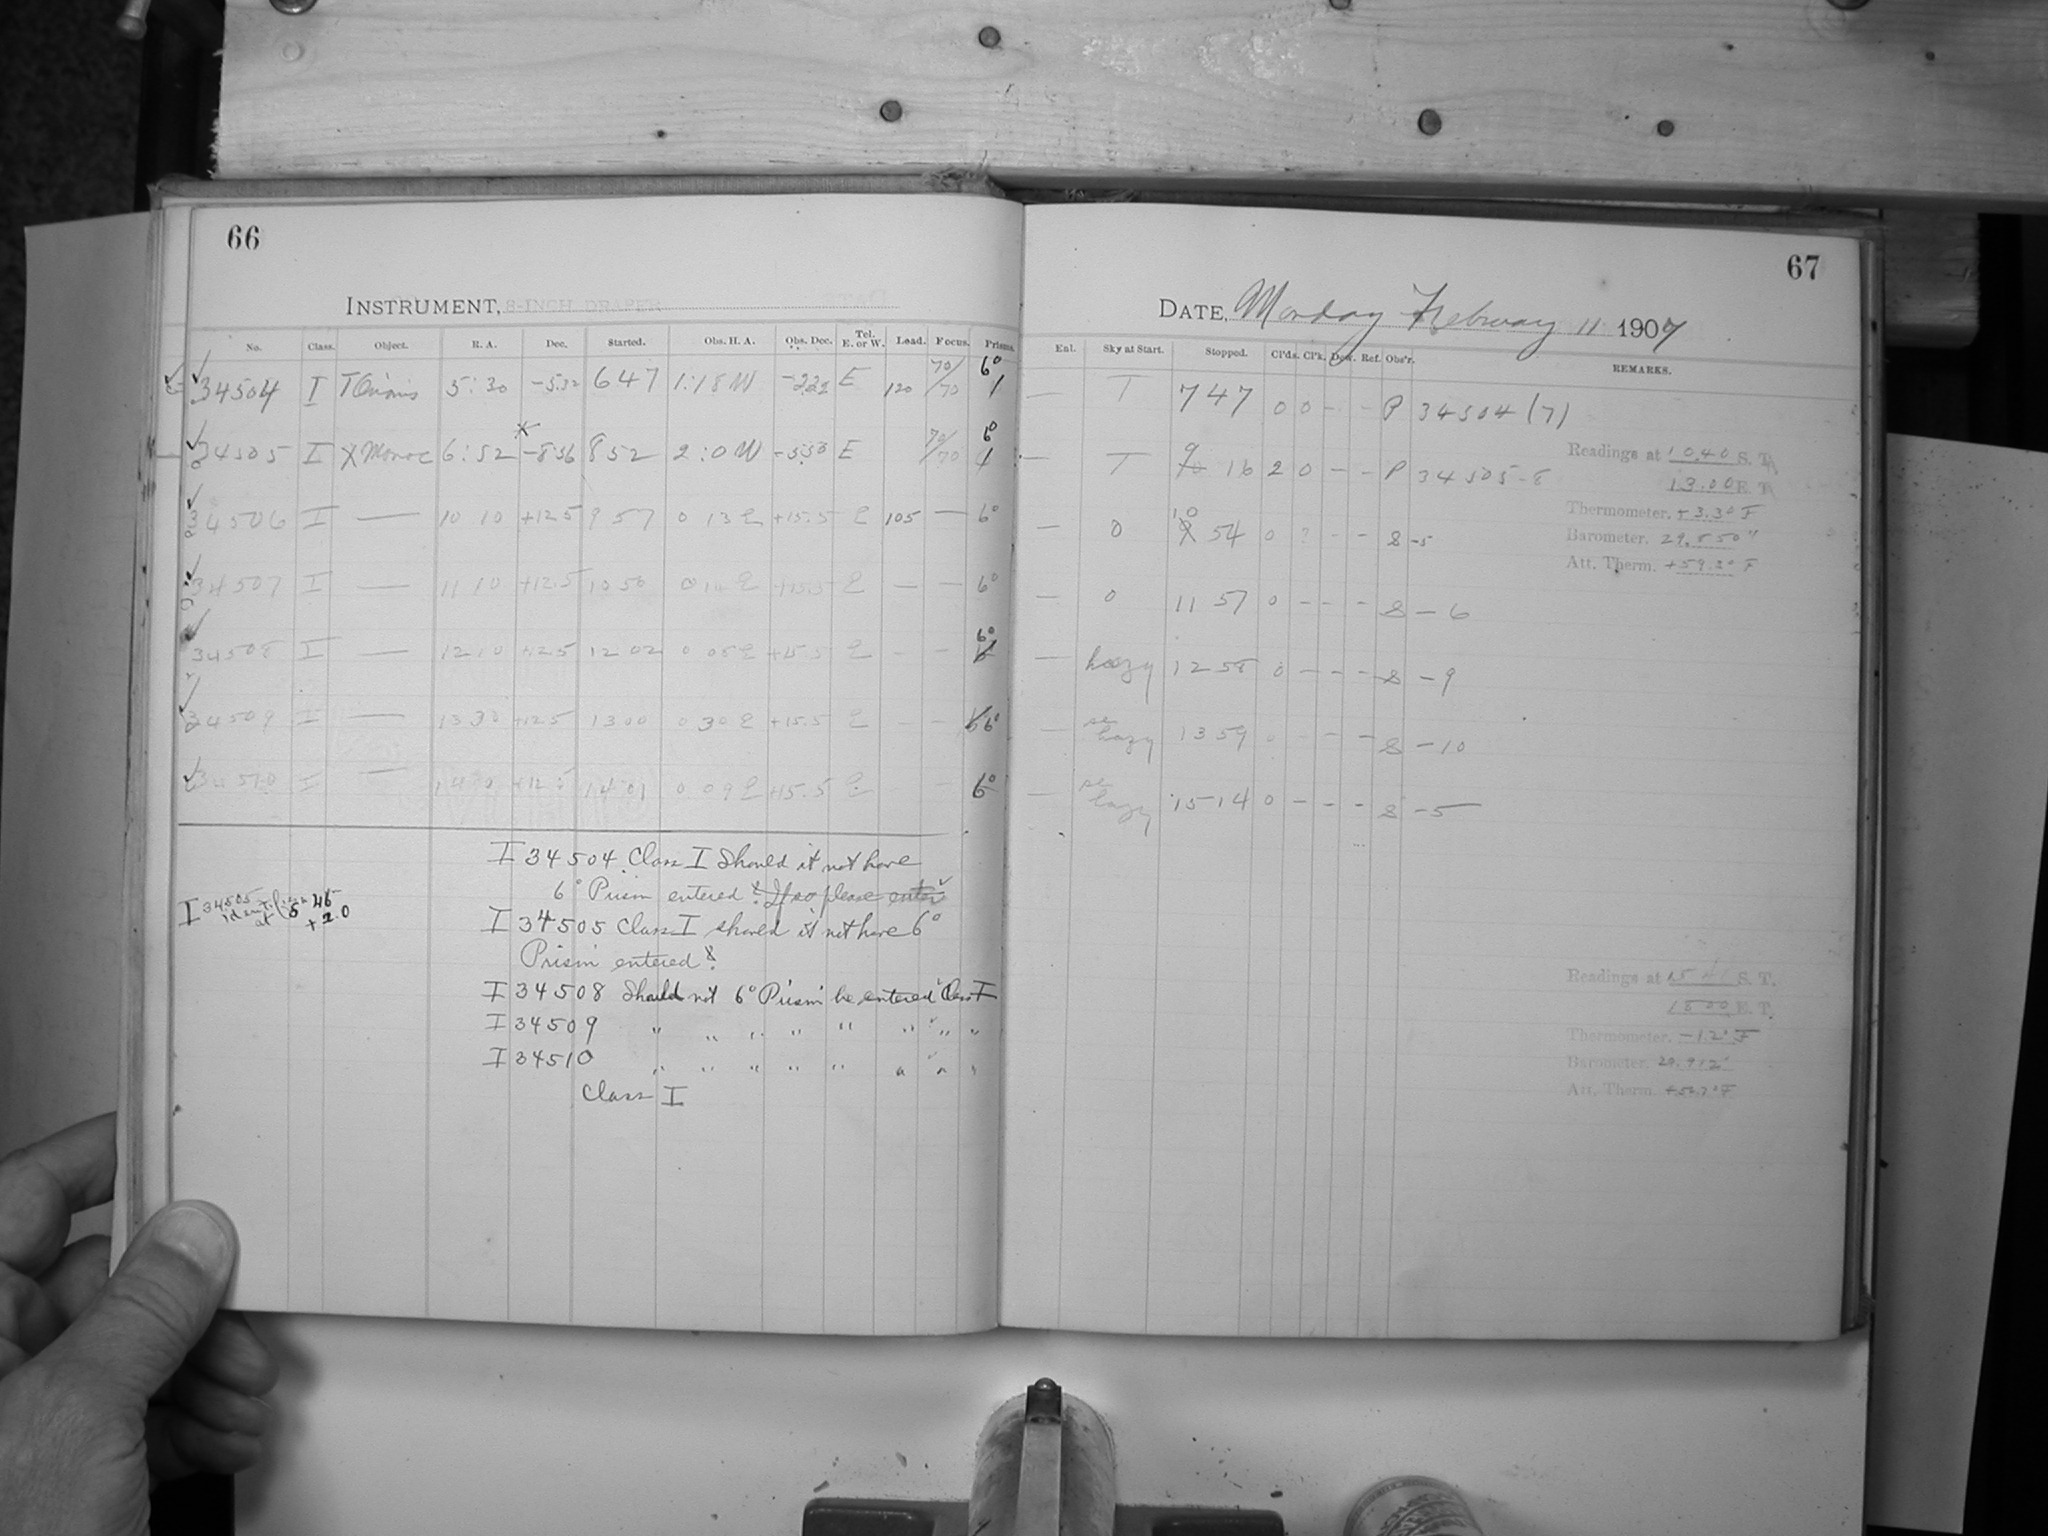 66
INSTRUMENT, 8-INCH DRAPER
No. Class. Object. R. A. Dec. Started. Obs. H. A. Obs. Dec. Tel. E. or W. Load. Focus. Prisms.
34504 I T Orionis 5:30 -5.32 647 1:18 W -222 E 120 70/70 6° 1
34505 I X Monoc 6:52 -8.56 852 2:0 W -5.30 E 70/70 6° 1
34506 I — 10 10 +12.5 9 57 0 13 E +15.5 E 105 — 6°
34507 I — 11 10 +12.5 10 56 0 14 E +15.5 E — — 6°
34508 I — 12 10 +12.5 12 02 0 05 E +15.5 E - - 6°
34509 I — 13 30 +12.5 13 00 0 30 E +15.5 E - - 6°
34510 I — 14 0 +12.5 14 01 0 09 E +15.5 E - 6°
I 34504 Class I Should it not have
6° Prism entered? If so please enter
I 34505 Class I should it not have 6°
Prism entered?
I 34508 Should not 6° Prism be entered Class I
I 34509 " " " " " " " "
I 34510 " " " " " " " "
Class I
I 34505 identified at 5 45 +2.0
67
DATE, Monday February 11 1907
Exl. Sky at Start. Stopped. Cl'ds. Cl'k. Dew. Ref. Obs'r. REMARKS.
— T 747 0 0 - - P 34504 (7)
— T 9 16 2 0 - - P 34505-8
— 0 10 54 0 ? - - S -5
— 0 11 57 0 - - - S - 6
— hazy 12 58 0 - - - S - 9
— hazy 13 59 0 - - - S - 10
— hazy 15 14 0 - - - S - 5
Readings at 10.40 S. T.
13.00 E. T.
Thermometer. +3.3° F
Barometer. 29.850"
Att. Therm. +59.2° F
Readings at S. T.
18 00 E. T.
Thermometer. -1.2° F
Barometer. 29.912"
Att. Therm.